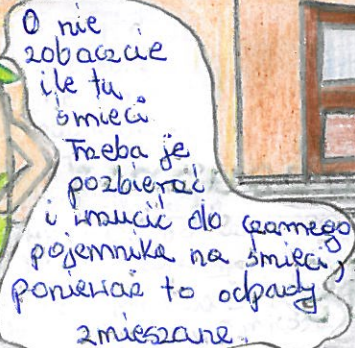 O nie
zobaczcie
ile tu
śmieci
Trzeba je
pozbierać
i wrzucić do czarnego
pojemnika na śmieci,
ponieważ to odpady
zmieszane.